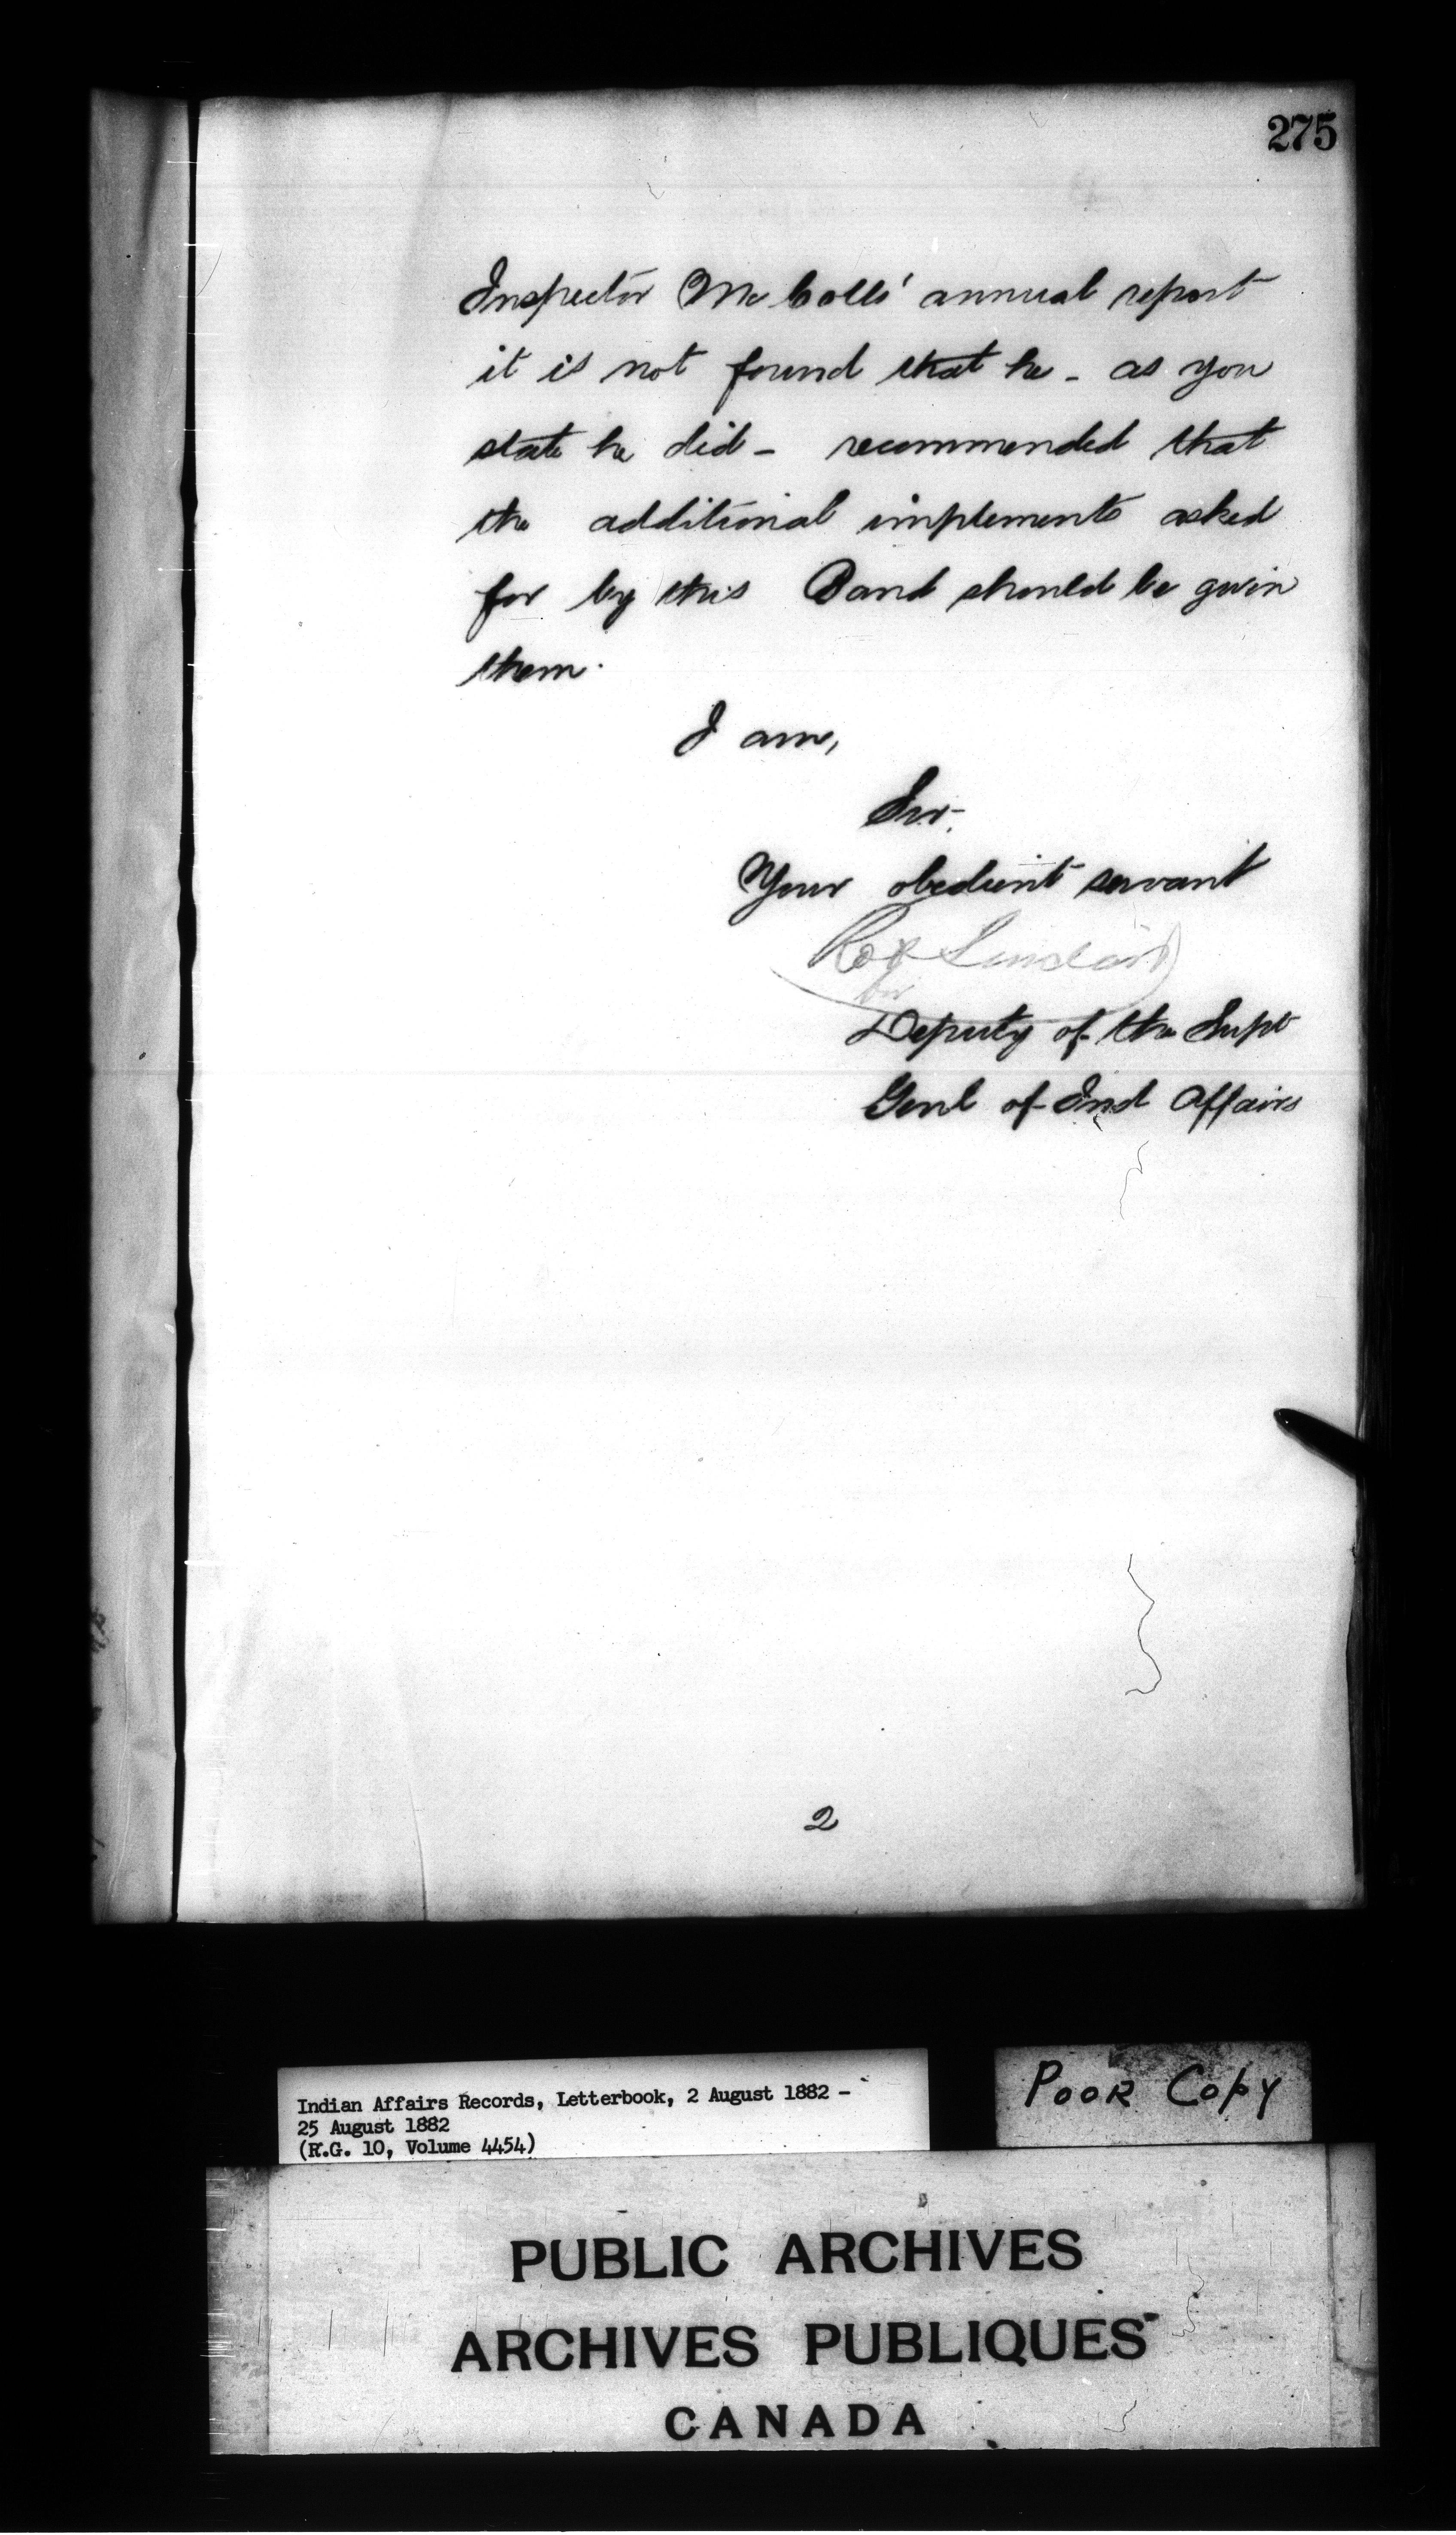 275
Inspector McColls' annual report
it is not found that he - as you
state he did - recommended that
the additional implements asked
for by this Band should be given
them.
I am,
Sir,
Your obedient servant
for
Deputy of the Supt
Genl of Ind Affairs
2
Indian Affairs Records, Letterbook, 2 August 1882 -
25 August 1882
(R.G. 10, Volume 4454)
POOR COPY
PUBLIC ARCHIVES
ARCHIVES PUBLIQUES
CANADA